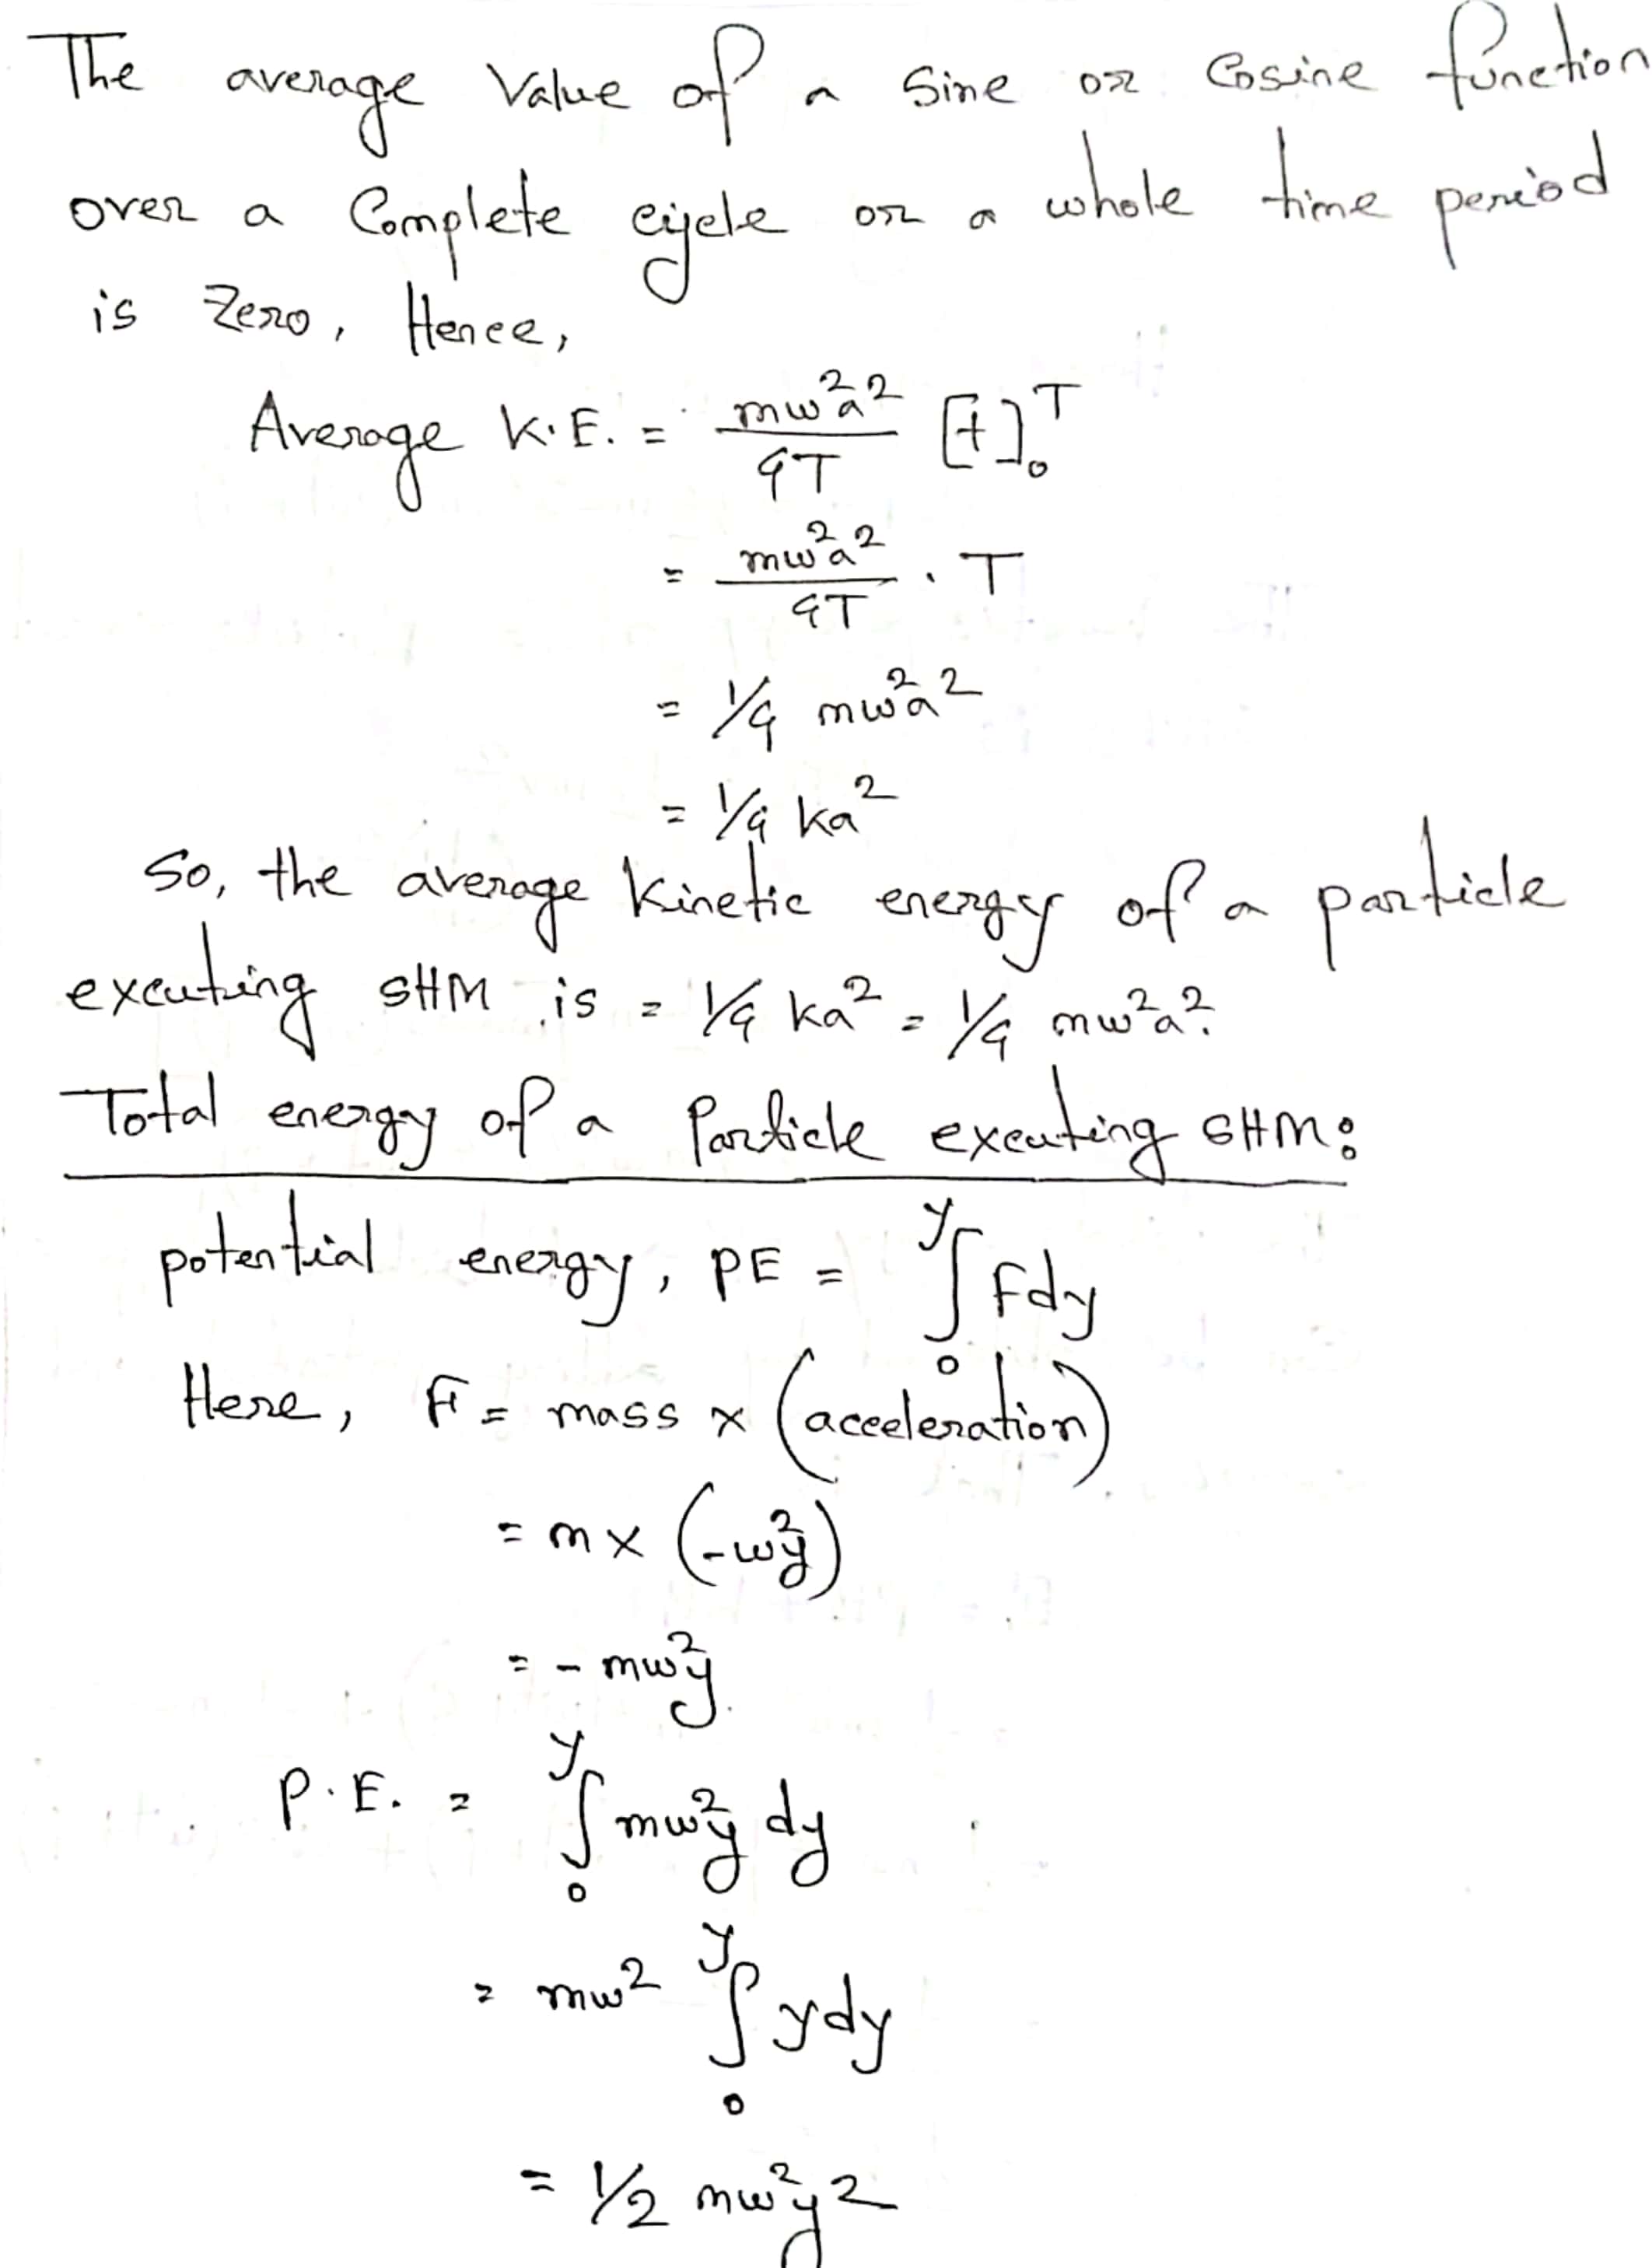 The average value of a sine or cosine function
over a complete cycle or a whole time period
is zero, Hence,
Average K.E. = mω²a²/4T [t]₀ᵀ
= mω²a²/4T . T
= 1/4 mω²a²
= 1/4 ka²
So, the average kinetic energy of a particle
excuting SHM is = 1/4 ka² = 1/4 mω²a².
Total energy of a particle excuting SHM:
potential energy, PE = ∫₀ʸ Fdy
Here, F = mass x (acceleration)
= m x (-ω²y)
= - mω²y.
P.E. = ∫₀ʸ mω²y dy
= mω² ∫₀ʸ ydy
= 1/2 mω²y²